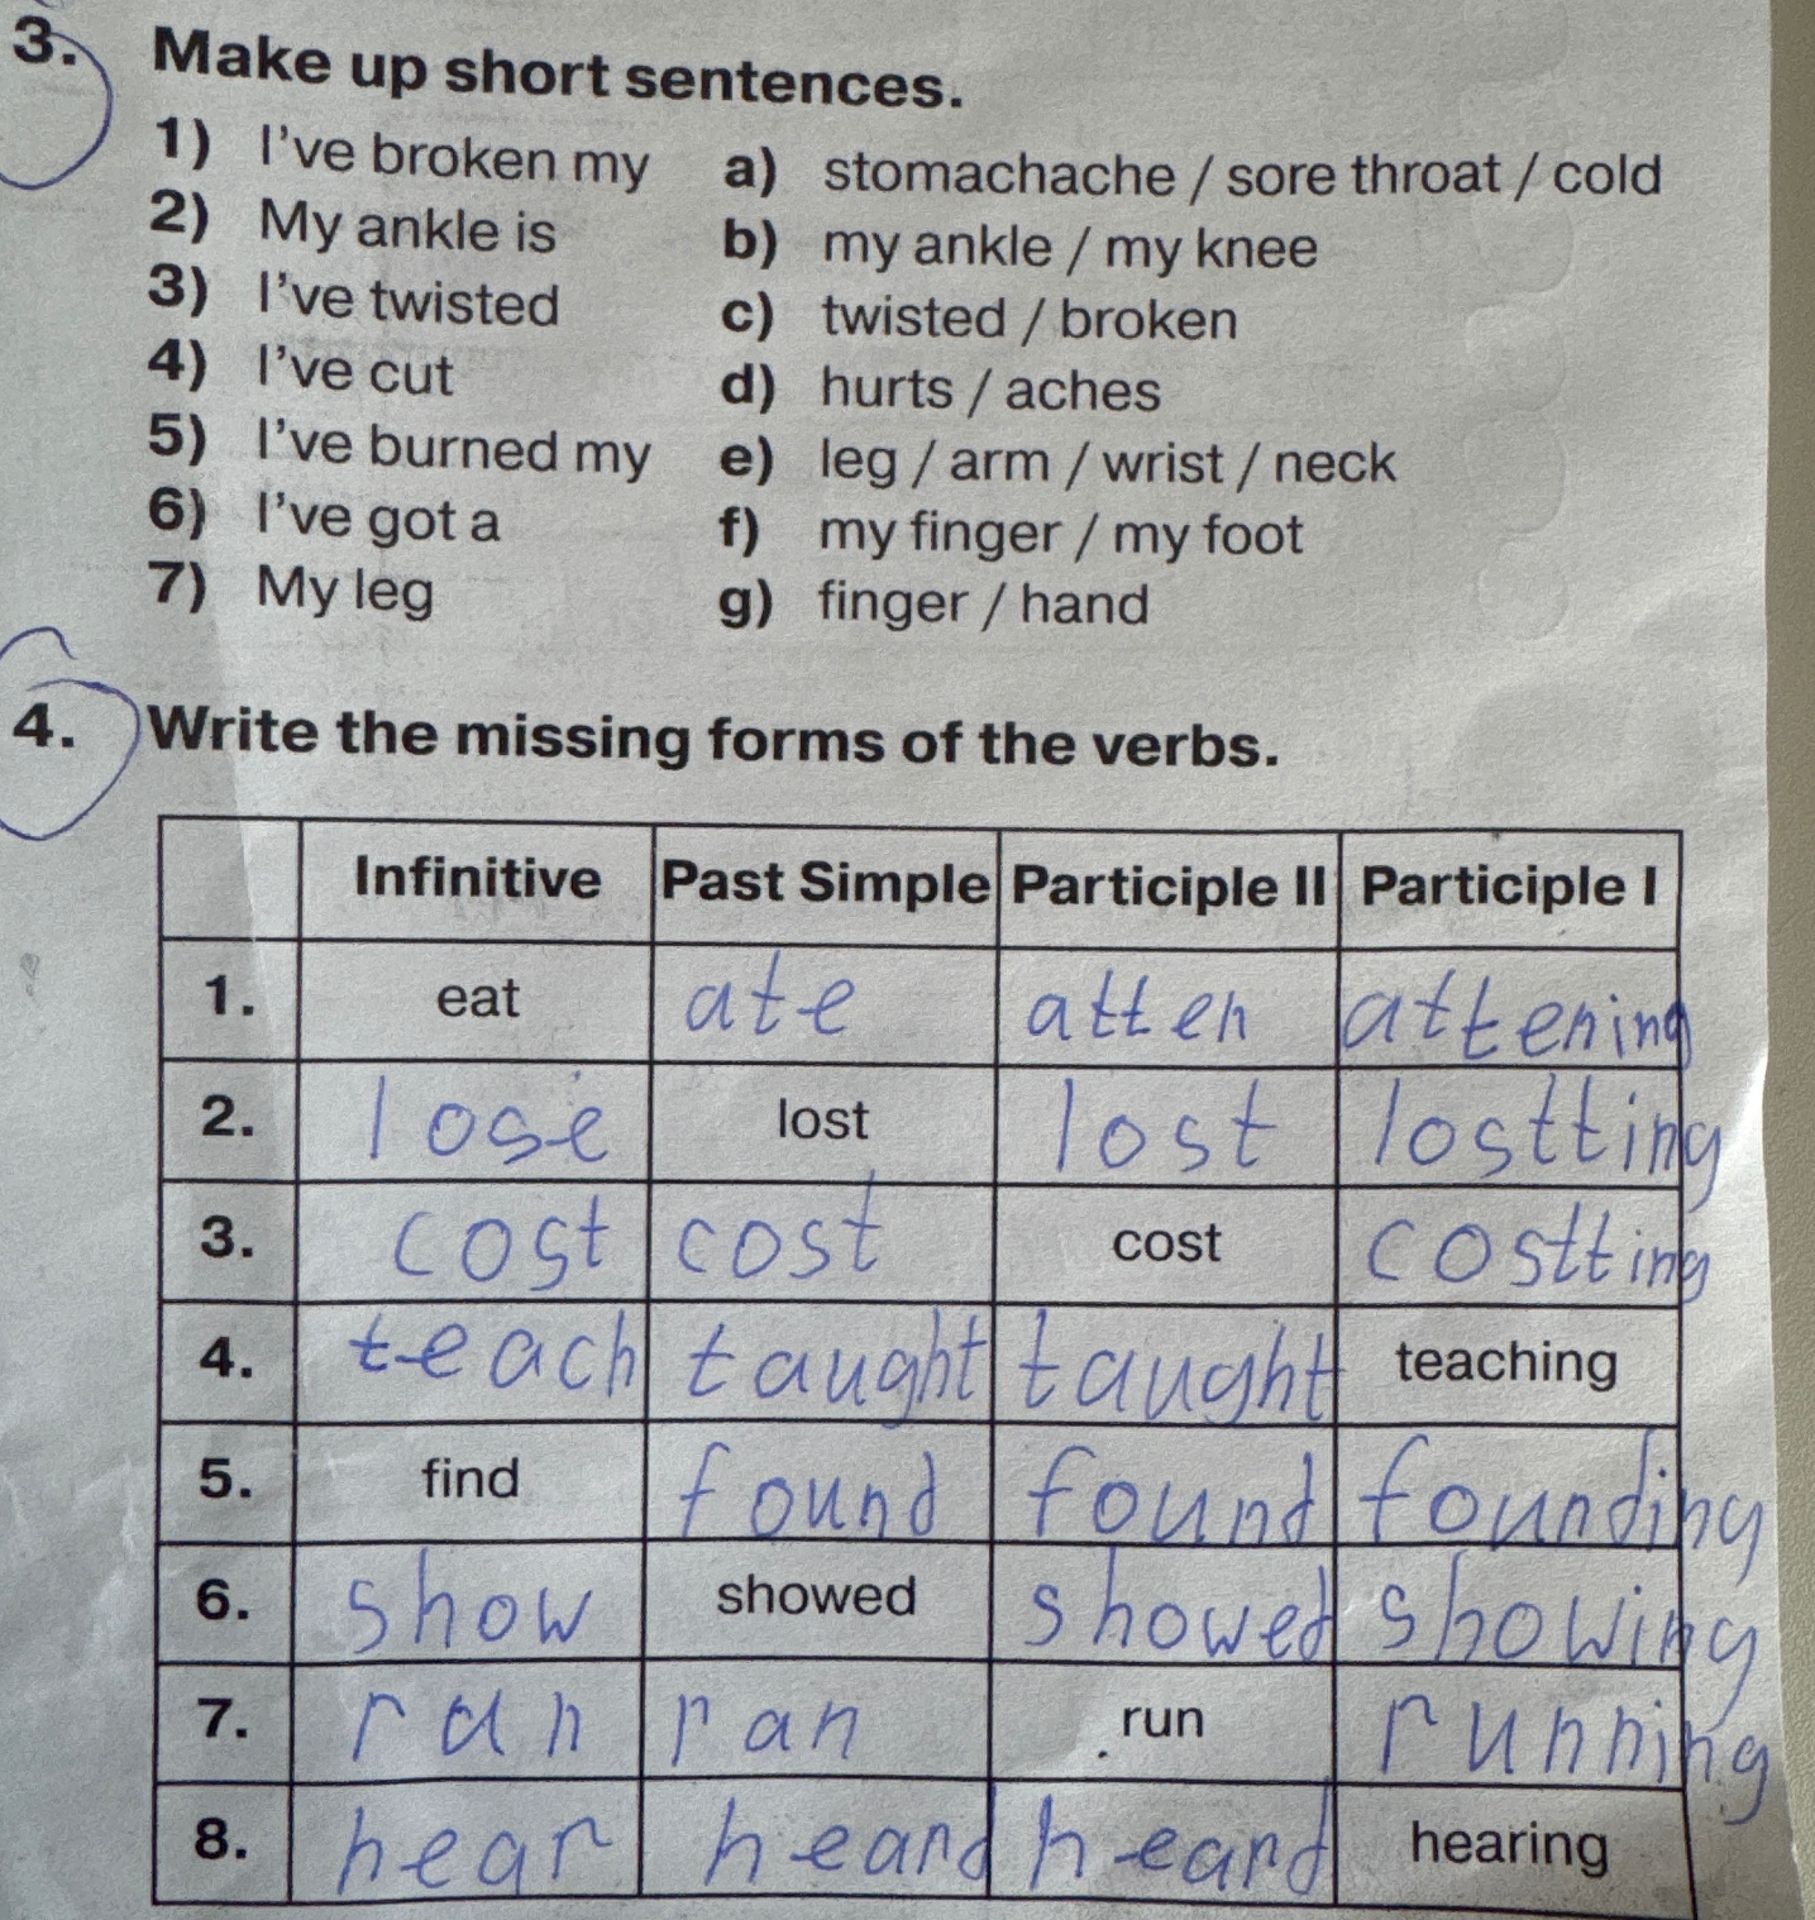 3. Make up short sentences.
1) I've broken my a) stomachache / sore throat / cold
2) My ankle is b) my ankle / my knee
3) I've twisted c) twisted / broken
4) I've cut d) hurts / aches
5) I've burned my e) leg / arm / wrist / neck
6) I've got a f) my finger / my foot
7) My leg g) finger / hand
4. Write the missing forms of the verbs.
Infinitive Past Simple Participle II Participle I
1. eat ate atten attening
2. lose lost lost lostting
3. cost cost cost costting
4. teach taught taught teaching
5. find found found founding
6. show showed showed showing
7. run ran run running
8. hear heard heard hearing